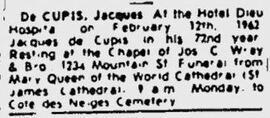 De CUPIS, Jacques At the Hotel Dieu
Hospita on February 12th, 1962
Jacques de Cupis in his 72nd year
Resting at the Chapel of Jos C Wray
& Bro 1234 Mountain St Funeral from
Mary Queen of the World Cathedral (St
James Cathedral, 9 am Monday, to
Cote des Neiges Cemetery